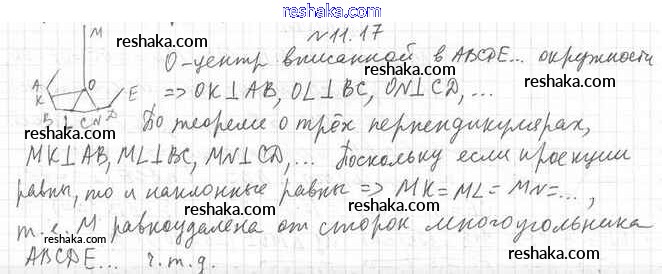 www.reshaka.com
M
№11.17
reshaka.com
O-центр вписанной в ABCDE... окружности
reshaka.com
A
K
O
E
B L C N D
=> OK⊥AB, OL⊥BC, ON⊥CD, ...
reshaka.com
По теореме о трёх перпендикулярах,
MK⊥AB, ML⊥BC, MN⊥CD, ... Поскольку если проекции
reshaka.com
равны, то и наклонные равны => MK=ML=MN=...,
reshaka.com
т.е. M равноудалена от сторон многоугольника
reshaka.com
ABCDE... ч.т.д.
reshaka.com